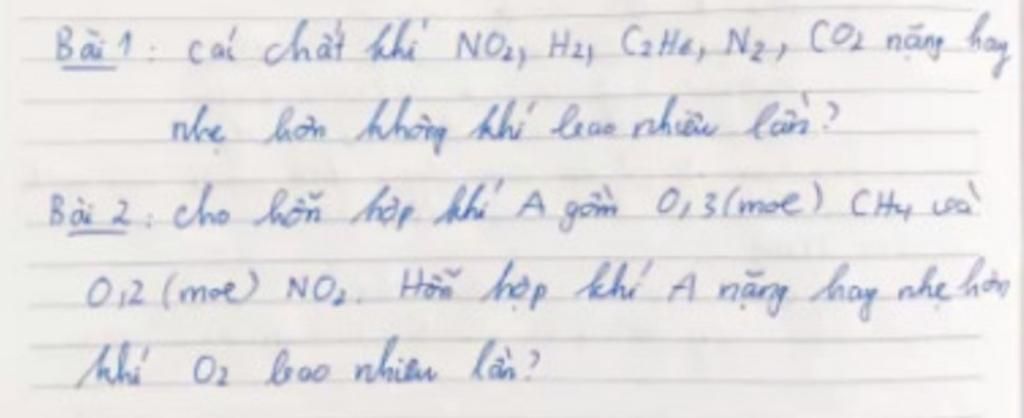 Bài 1: các chất khí NO2, H2, C2H6, N2, CO2 nặng hay
nhẹ hơn không khí bao nhiêu lần?
Bài 2: cho hỗn hợp khí A gồm 0,3 (mol) CH4 và
0,2 (mol) NO2. Hỗn hợp khí A nặng hay nhẹ hơn
khí O2 bao nhiêu lần?